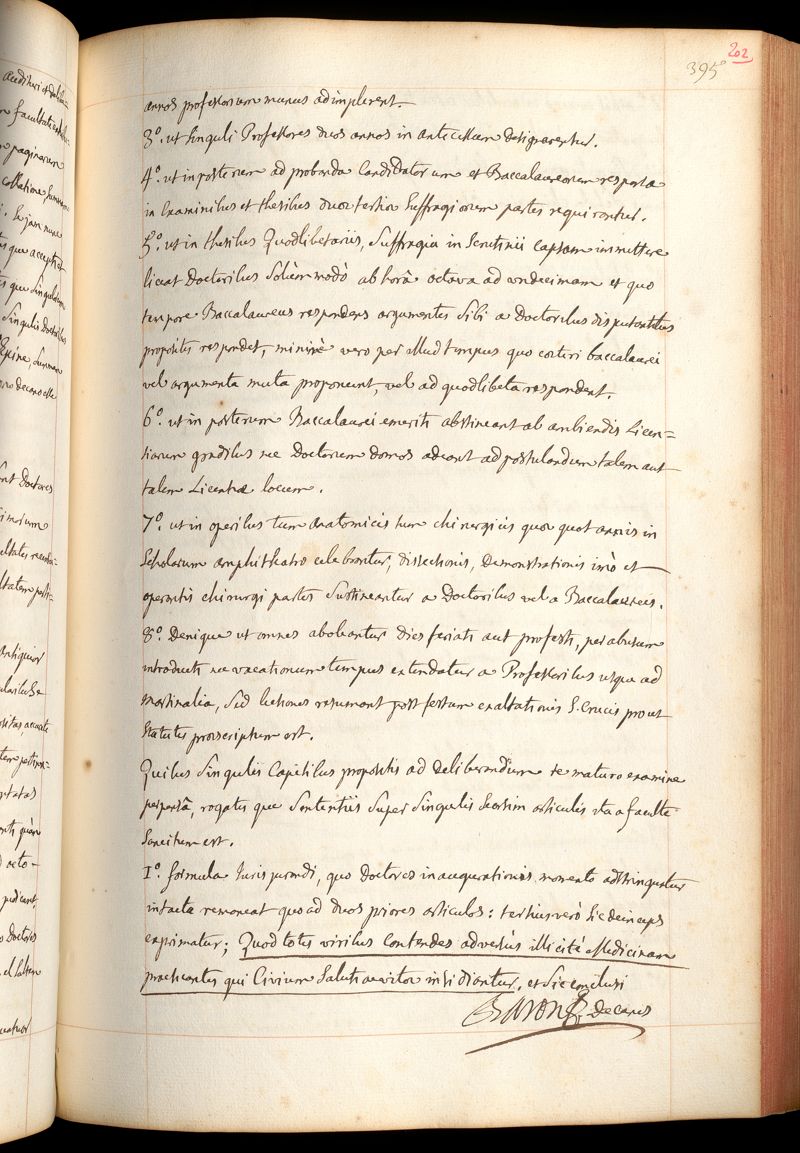 202
395
annos professorum munus adimplerent.
3°. ut singuli Professores duos annos in antecessum designarentur.
4°. ut in posterum ad probanda Candidatorum et Baccalaureorum responsa
in Examinibus et thesibus duae tertiae suffragiorum partes requirantur.
5°. ut in thesibus Quodlibetariis, suffragia in Scrutinii Capsam immittere
liceat Doctoribus solùm modò ab horâ octava ad undecimam et quo
tempore Baccalaureus respondens argumentis sibi a Doctoribus disputantibus
propositis respondet, minimè vero per illud tempus quo coeteri baccalaurei
vel argumenta muta proponunt, vel ad quodlibeta respondent.
6°. ut in posterum Baccalaurei emeriti abstineant ab ambiendis Licen=
tiarum gradibus nec Doctorum domos adeant ad postulandum talem aut
talem Licentiae locum.
7°. ut in operibus tum anatomicis tum chirurgicis quae quot annis in
Scholarum amphitheatro celebrantur, dissectionis, Demonstrationis imò et
operantis chirurgi partes sustineantur a Doctoribus vel a Baccalaureis.
8°. Denique ut omnes aboleantur dies feriati aut profesti, per abusum
introducti ne vacationum tempus extendatur a Professoribus usque ad
martinalia, sed lectiones resumant post festum exaltationis S. Crucis prout
statutis proescriptum est.
Quibus singulis Capitibus propositis ad deliberandum re maturo examine
perpensâ, rogatis que sententiis super singulis seorsim articulis ita a facult.
sancitum est.
1°. formula Jurisjurandi, quo Doctores inaugurationis momento adstringuntur
intacta remaneat quoad duos priores articulos: tertius verò sic deinceps
exprimatur; Quod totis viribus contendes adversùs illicitè Medicinam
practicantes qui Civium saluti ac vitae insidiantur. et sic conclusi
Baron Decanus